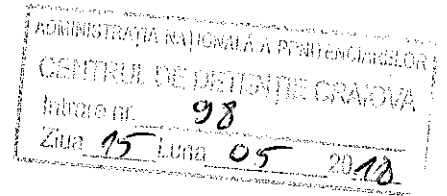 ADMINISTRAȚIA NAȚIONALĂ A PENITENCIARELOR
CENTRUL DE DETENȚIE CRAIOVA
Intrare nr. 98
Ziua 15 Luna 05 2018